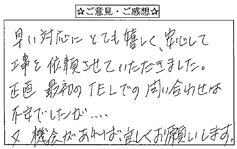 ☆ご意見・ご感想☆
早い対応にとても嬉しく、安心して
工事を依頼させていただきました。
正直 最初のTELでの問い合わせは
不安でしたが....
又機会があれば、宜しくお願いします。